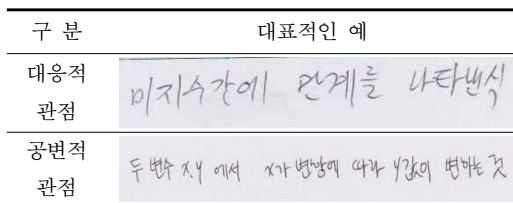 구 분 대표적인 예
대응적 관점 미지수간에 관계를 나타낸식
공변적 관점 두 변수 x, y 에서 x가 변함에 따라 y값이 변하는 것